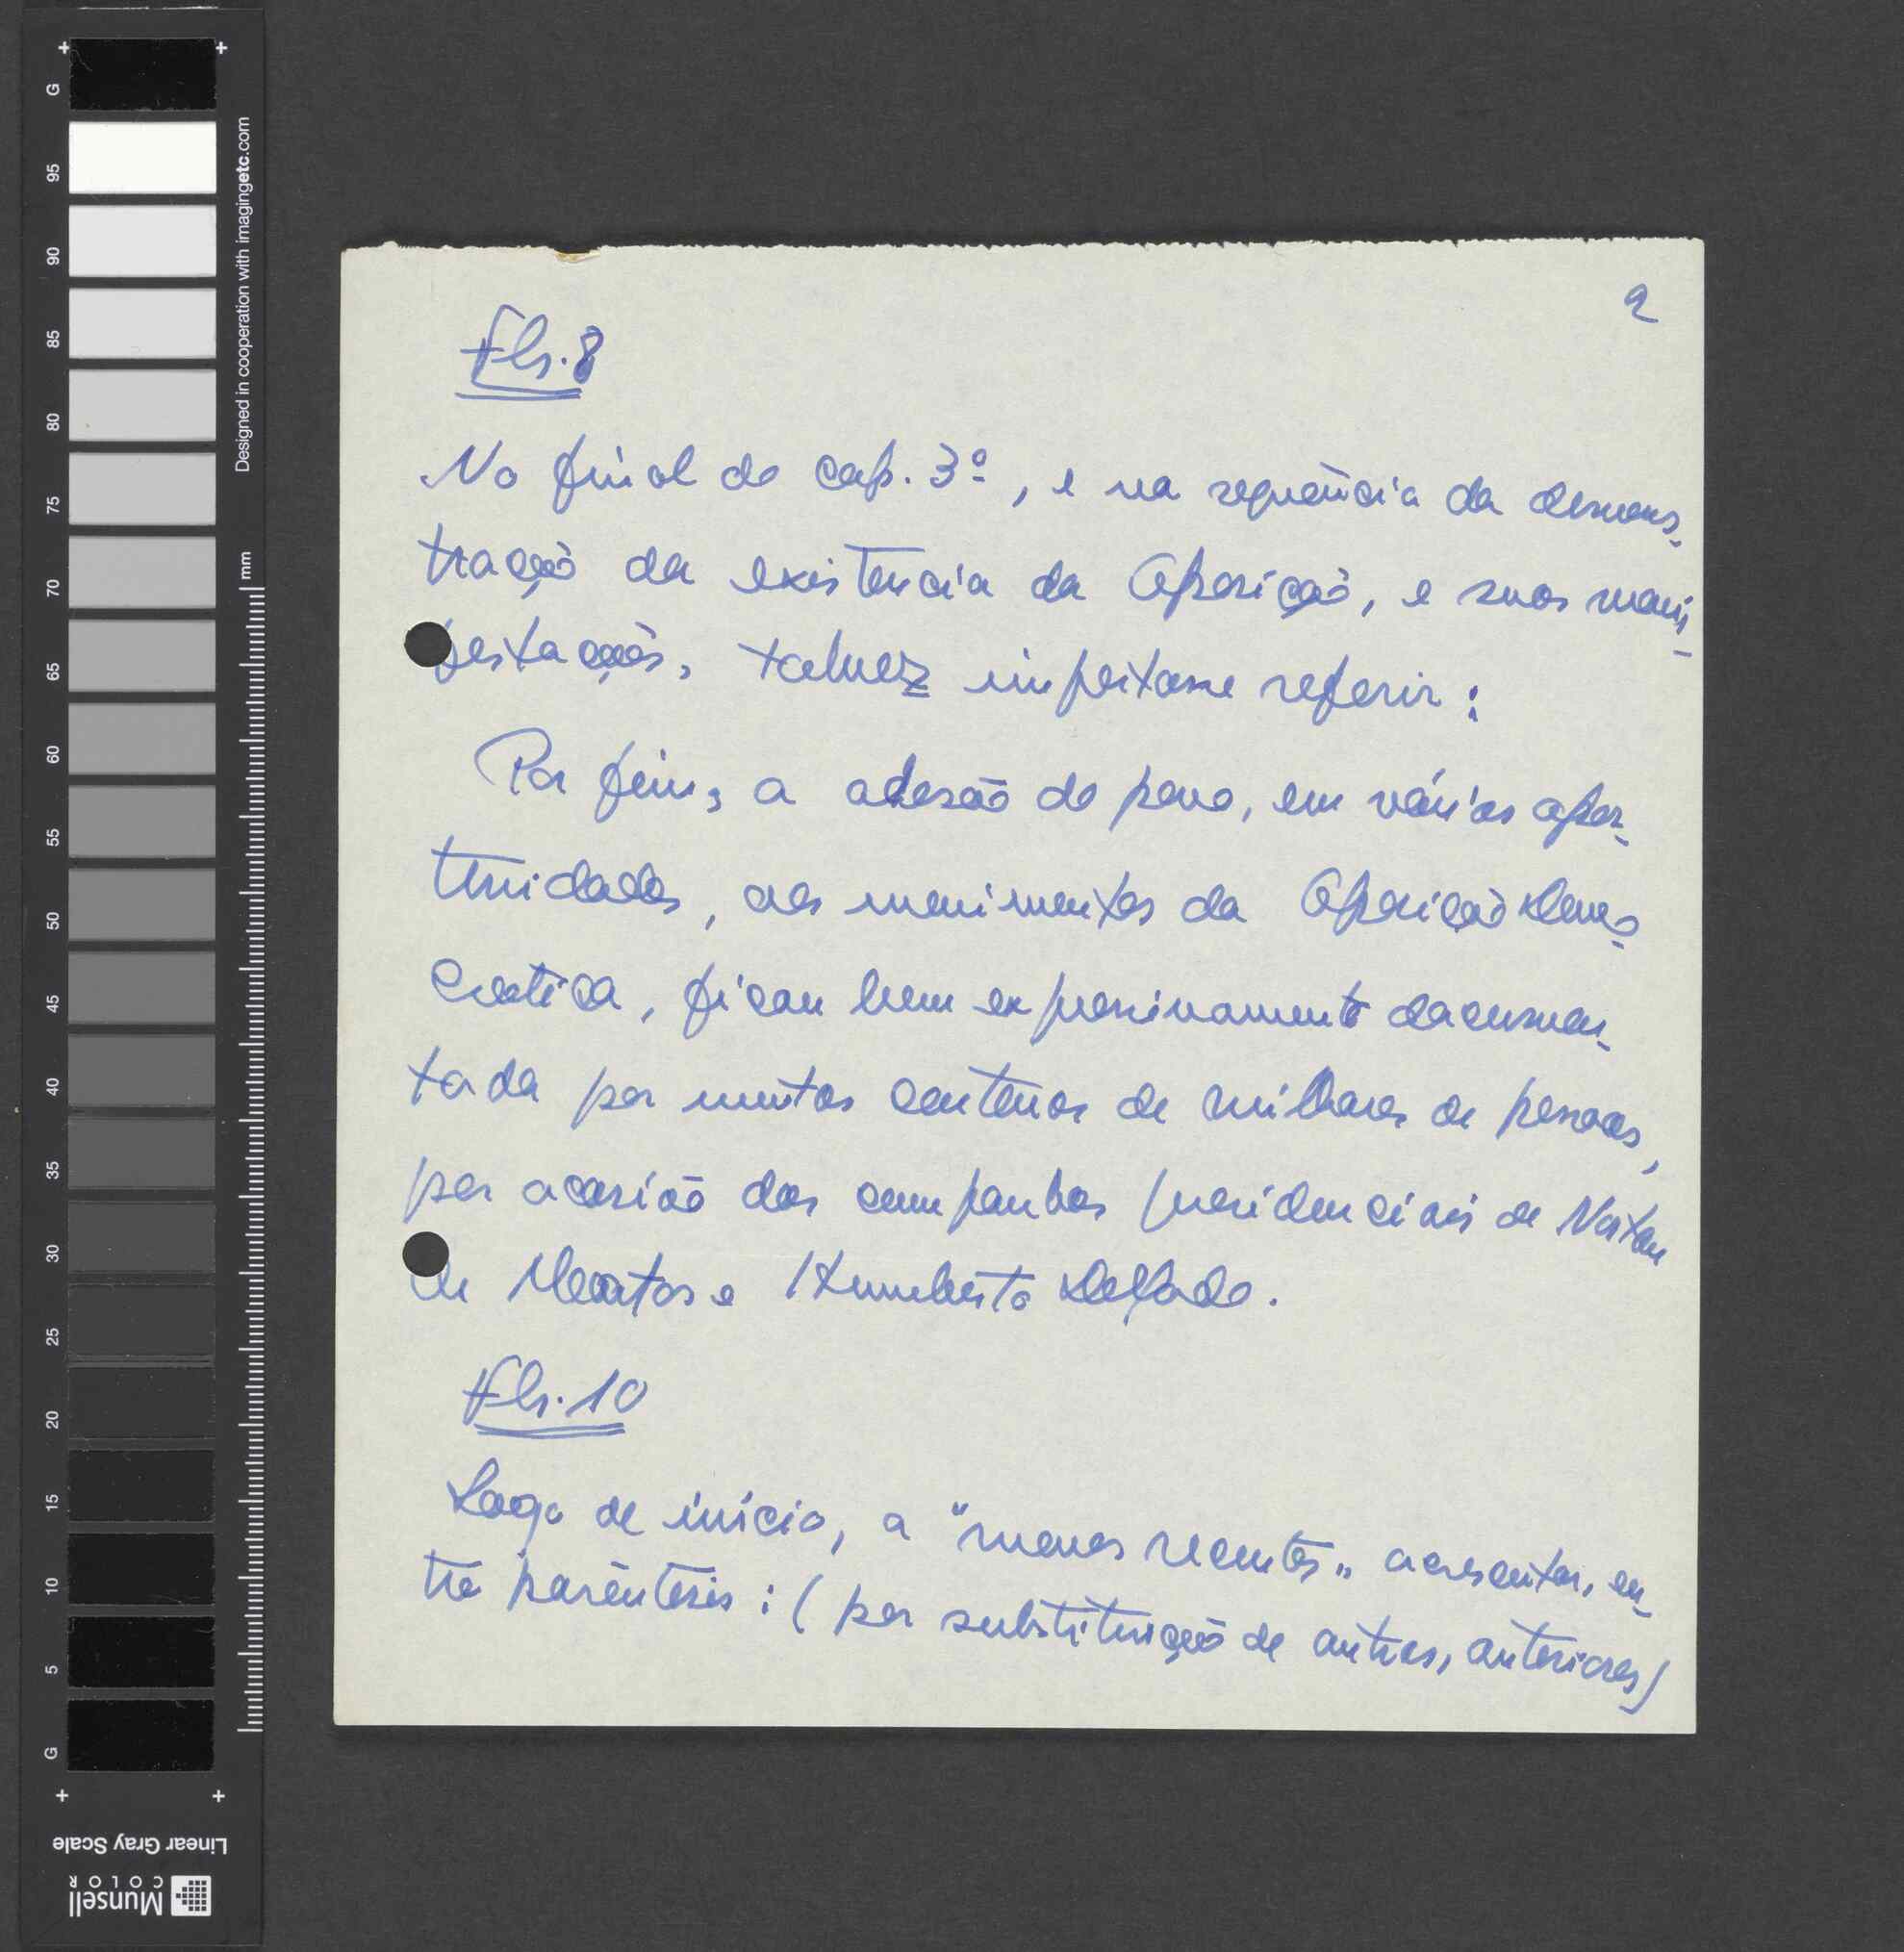 2
Fls. 8
No final do cap. 3º, e na sequência da demons-
tração da existencia da Oposição, e suas mani-
festações, talvez importasse referir:
Por fim, a adesão do povo, em várias opor-
tunidades, aos movimentos da Oposição Demo-
cratica, ficou bem expressivamente documen-
tada por muitas centenas de milhares de pessoas,
por ocasião das campanhas presidenciais de Norton
de Matos e Humberto Delgado.
Fls. 10
Logo de início, a "menos recentes" acrescentar, en-
tre parêntesis: (por substituição de outros, anteriores)
G
95
90
85
80
75
70
65
60
55
50
45
40
35
30
25
20
15
10
5
G
Designed in cooperation with imagingetc.com
mm
Linear Gray Scale
Munsell
COLOR